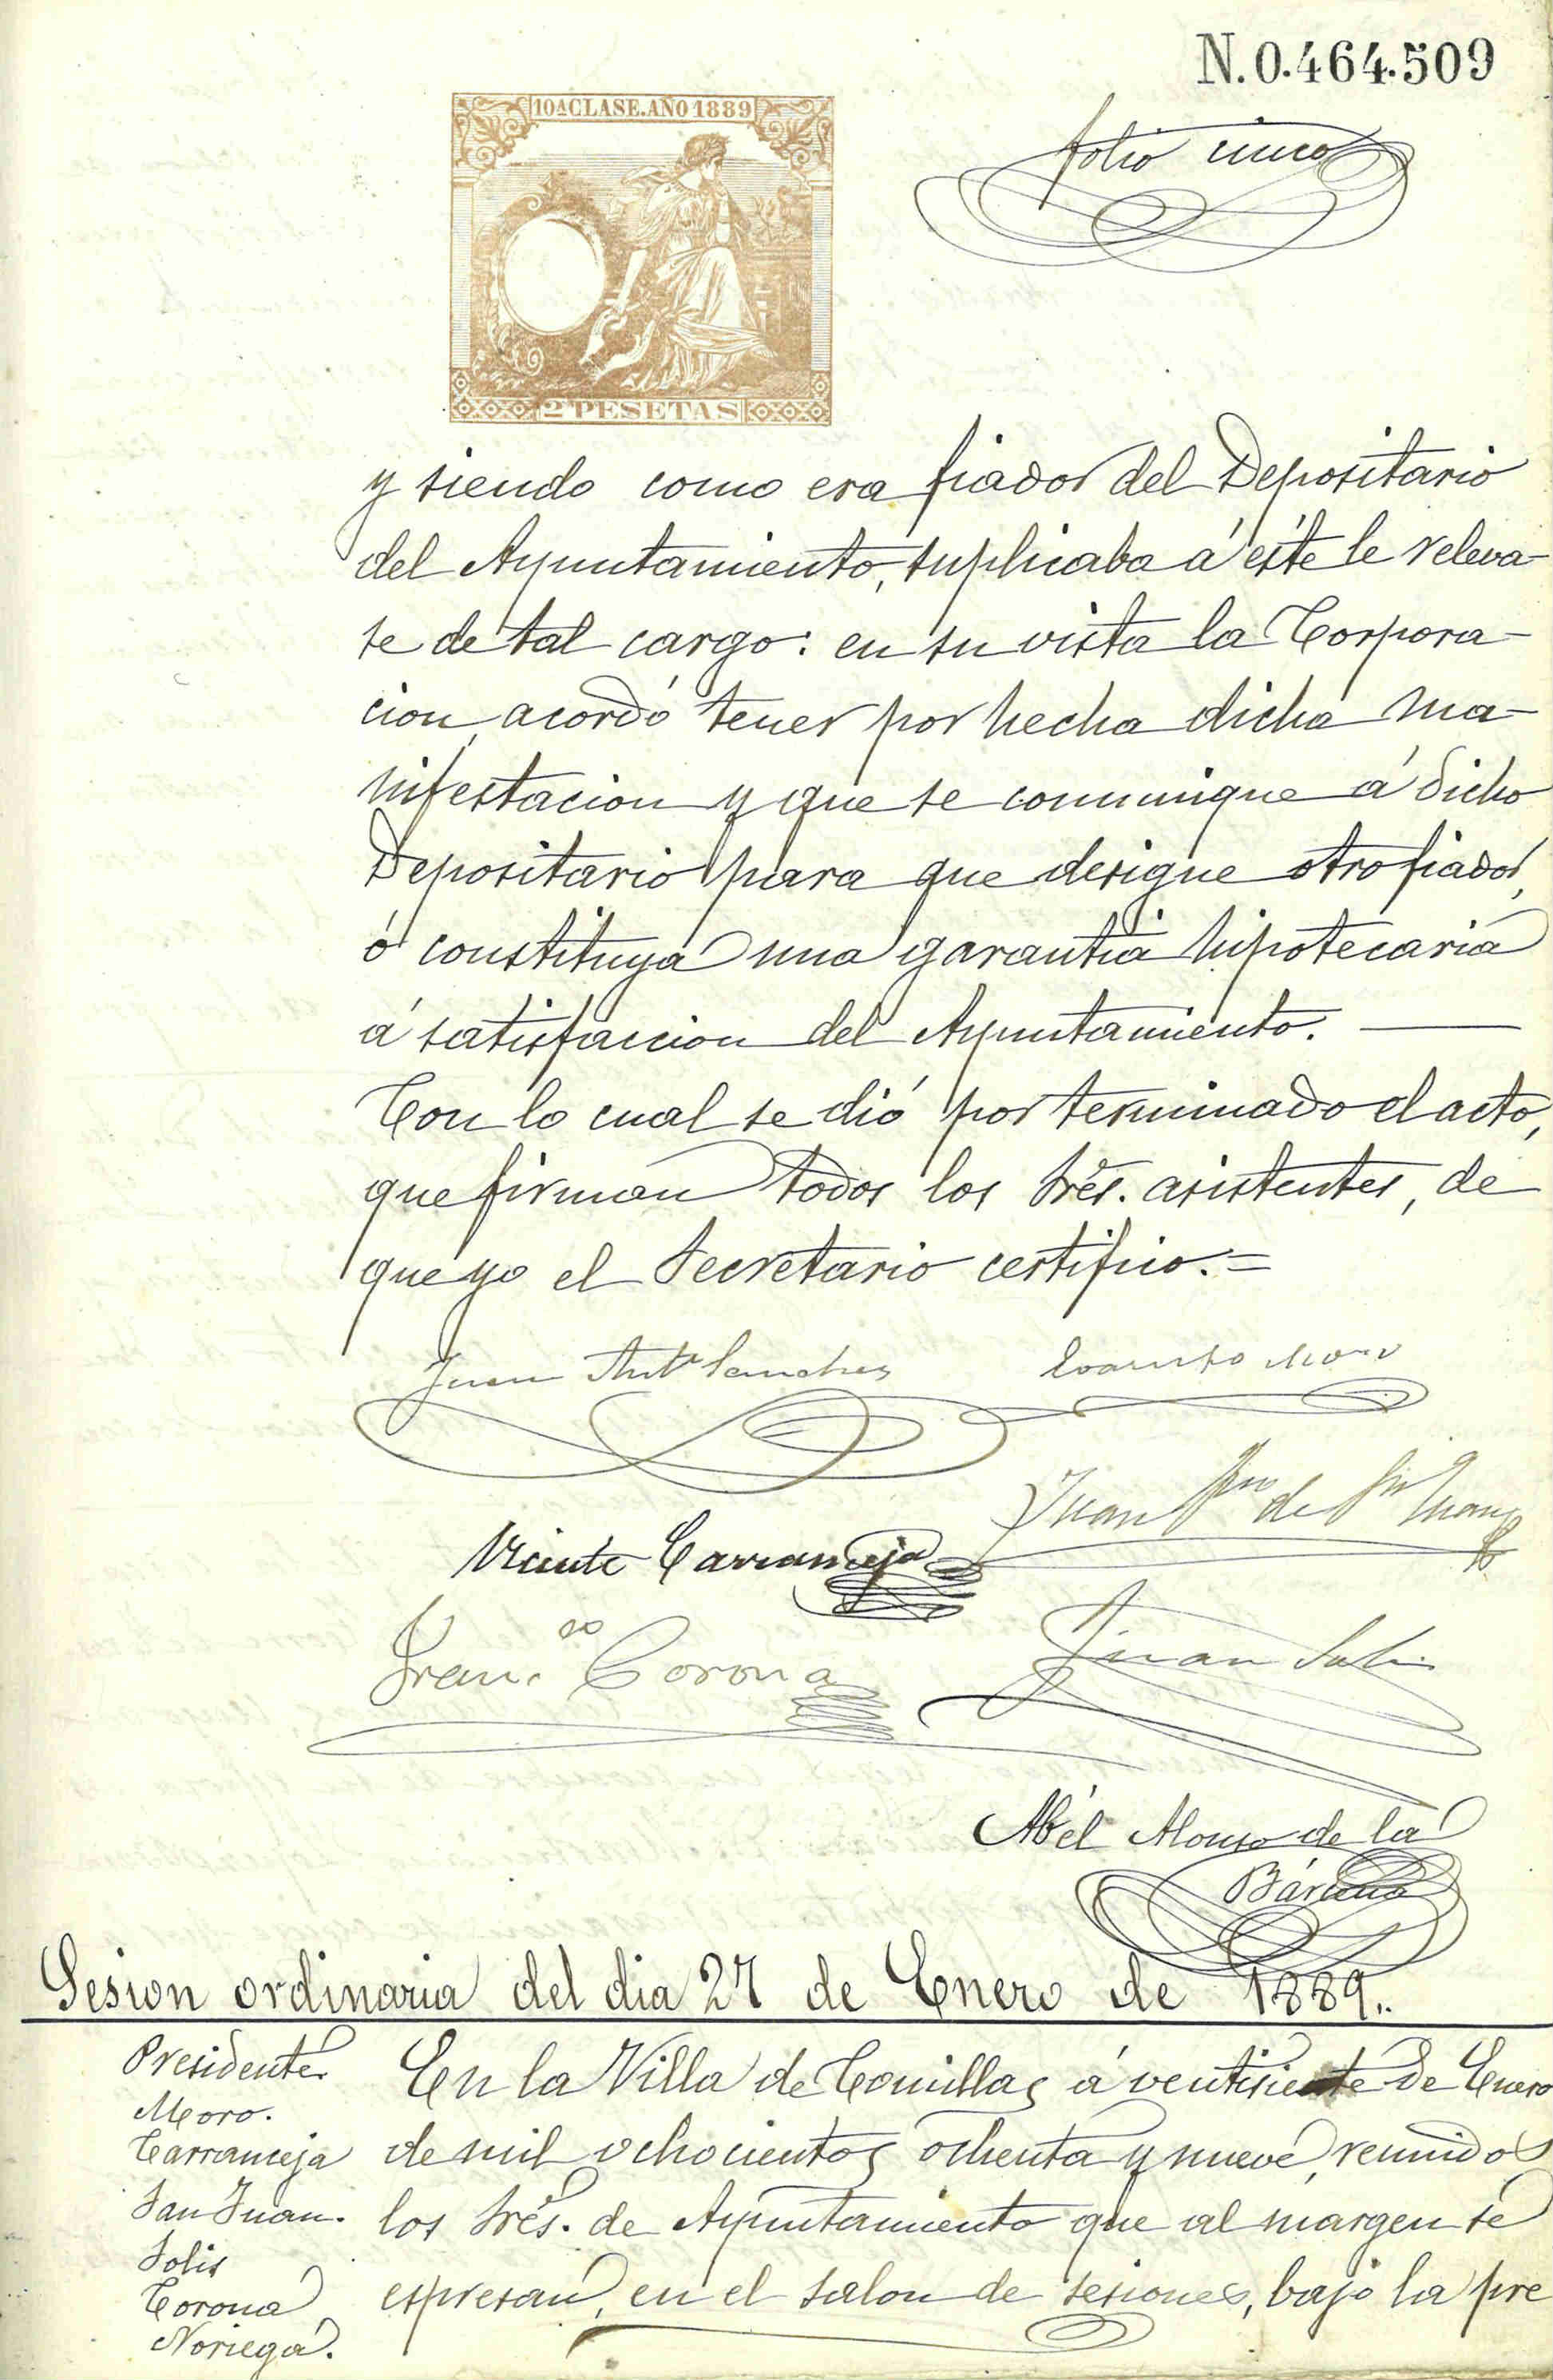 N.0.464.509
10ª CLASE. AÑO 1889
folio cinco
2 PESETAS
y siendo como era fiador del Depositario
del Ayuntamiento, suplicaba á éste le releva-
se de tal cargo: en su vista la Corpora-
cion, acordó tener por hecha dicha ma-
nifestacion y que se comunique á dicho
Depositario para que designe otro fiador,
ó constituya una garantia hipotecaria
á satisfaccion del Ayuntamiento.
Con lo cual se dió por terminado el acto,
que firman todos los Srēs. asistentes, de
que yo el Secretario certifico.=
Juan Antº Sanchez
Evaristo Moro
Juan de Sn Juan
Vicente Carranceja
Francco Corona
Juan Solis
Abél Alonso de la
Bárcena
Sesion ordinaria del dia 27 de Enero de 1889..
Presidente
Moro.
Carranceja
San Juan.
Solis
Corona
Noriega.
En la Villa de Comillas á ventisiete de Enero
de mil ochocientos ochenta y nueve, reunidos
los Srēs. de Ayuntamiento que al margen se
espresan, en el salon de sesiones, bajo la pre